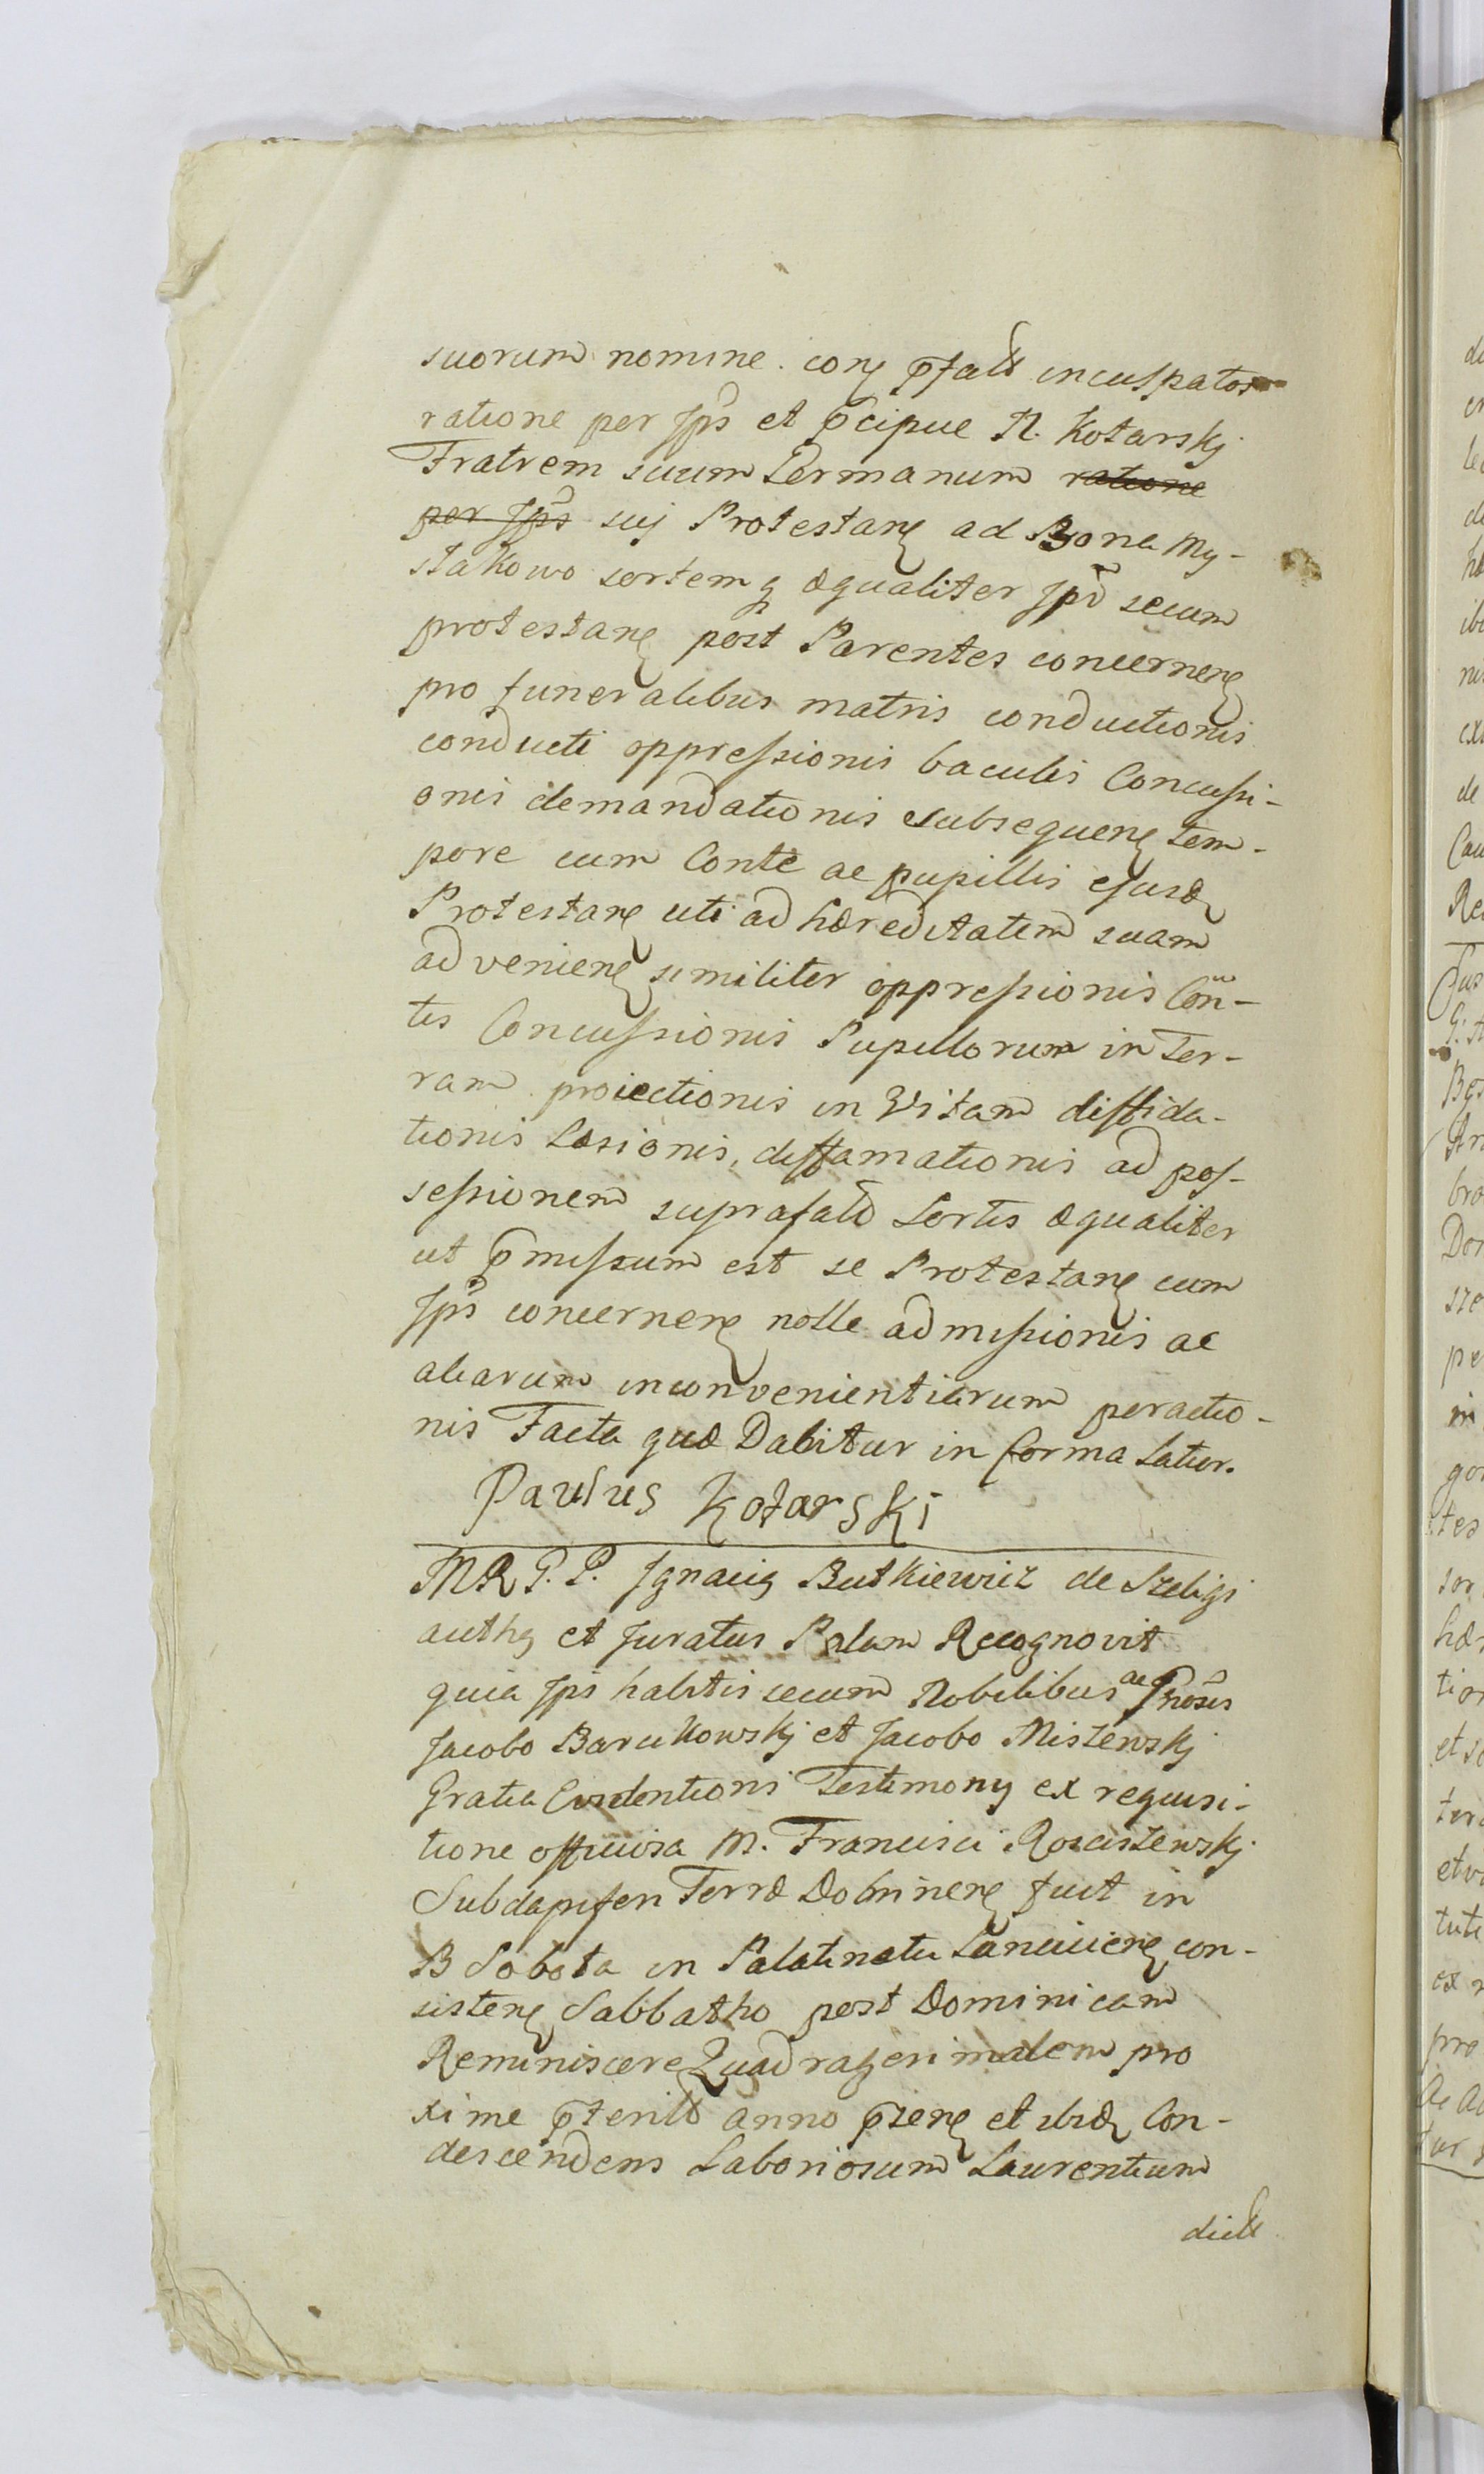 suorum nomine cong p̄fatt inculpatos
ratione per Jp̄s et p̄cipue N. Kotarskj
Fratrem suum Germanum ratione
per Jp̄s suj Protestang ad Bona My-
stakowo sortemq æqualiter Jpō secum
protestang post Parentes concerneng
pro funeralibus matris conductionis
conducti oppressionis baculis Concussi-
onis demandationis subsequeng tem-
pore cum Conte ac pupillis ejusd
Protestang uti ad hæreditatem suam
advenieng similiter oppressionis Con-
tis Concussionis Pupillorum in Ter-
ram proiectionis in Vitam diffida-
tionis Læsionis, diffamationis ad pos-
sessionem suprafatt Sortis æqualiter
ut p̄missum est se Protestang cum
Jp̄s concerneng nolle admissionis ac
aliarum inconvenientiarum peractio-
nis Facta quæ Dabitur in forma Latior.
Paulus Kotarski
MRG.P. Ignacig Butkiewicz de Szeligi
authg et Juratus Palam Recognovit
quia Jps habitis secum Nobilibus ac
Jacobo Barcikowskj et Jacobo Miszewskj
Gratia Evidentioris Testimony ex requisi-
tione officiosa M. Francisci Rosciszewskj
Subdapiferi Terræ Dobrineng fuit in
B Sobota in Palatinatu Lancicieng con-
sisteng Sabbatho post Dominicam
Reminiscere Quadragesimalem pro
xime p̄teritt anno p̄zeng et ibid Con-
descendens Laboriosum Laurentium
dictt